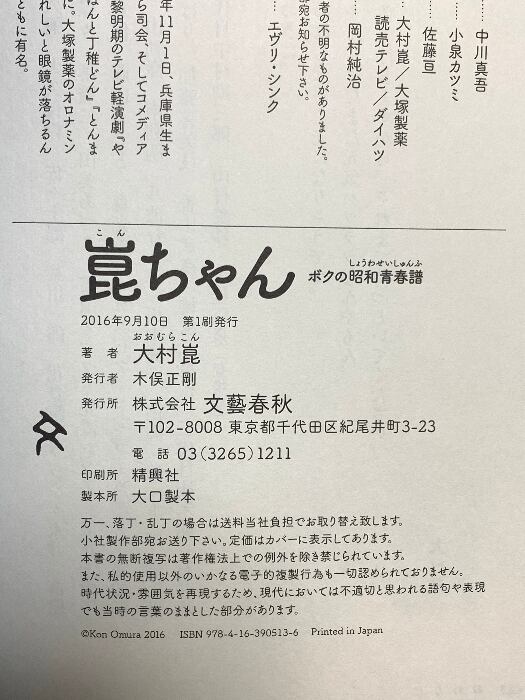 …… 中川真吾
…… 小泉カツミ
…… 佐藤亘
…… 大村崑／大塚製薬
読売テレビ／ダイハツ
…… 岡村純治
者の不明なものがありました。
部宛お知らせ下さい。
…… エヴリ・シンク
年11月1日、兵庫県生ま
ら司会、そしてコメディア
黎明期のテレビ軽演劇『や
はんと丁稚どん』『とんま
に。大塚製薬のオロナミン
れしいと眼鏡が落ちるん
ともに有名。
こん
崑ちゃん
しょうわせいしゅんふ
ボクの昭和青春譜
2016年9月10日 第1刷発行
おおむらこん
著者 大村崑
発行者 木俣正剛
発行所 株式会社 文藝春秋
〒102-8008 東京都千代田区紀尾井町3-23
電話 03(3265)1211
印刷所 精興社
製本所 大口製本
万一、落丁・乱丁の場合は送料当社負担でお取り替え致します。
小社製作部宛お送り下さい。定価はカバーに表示してあります。
本書の無断複写は著作権法上での例外を除き禁じられています。
また、私的使用以外のいかなる電子的複製行為も一切認められておりません。
時代状況・雰囲気を再現するため、現代においては不適切と思われる語句や表現
でも当時の言葉のままとした部分があります。
©Kon Omura 2016 ISBN 978-4-16-390513-6 Printed in Japan